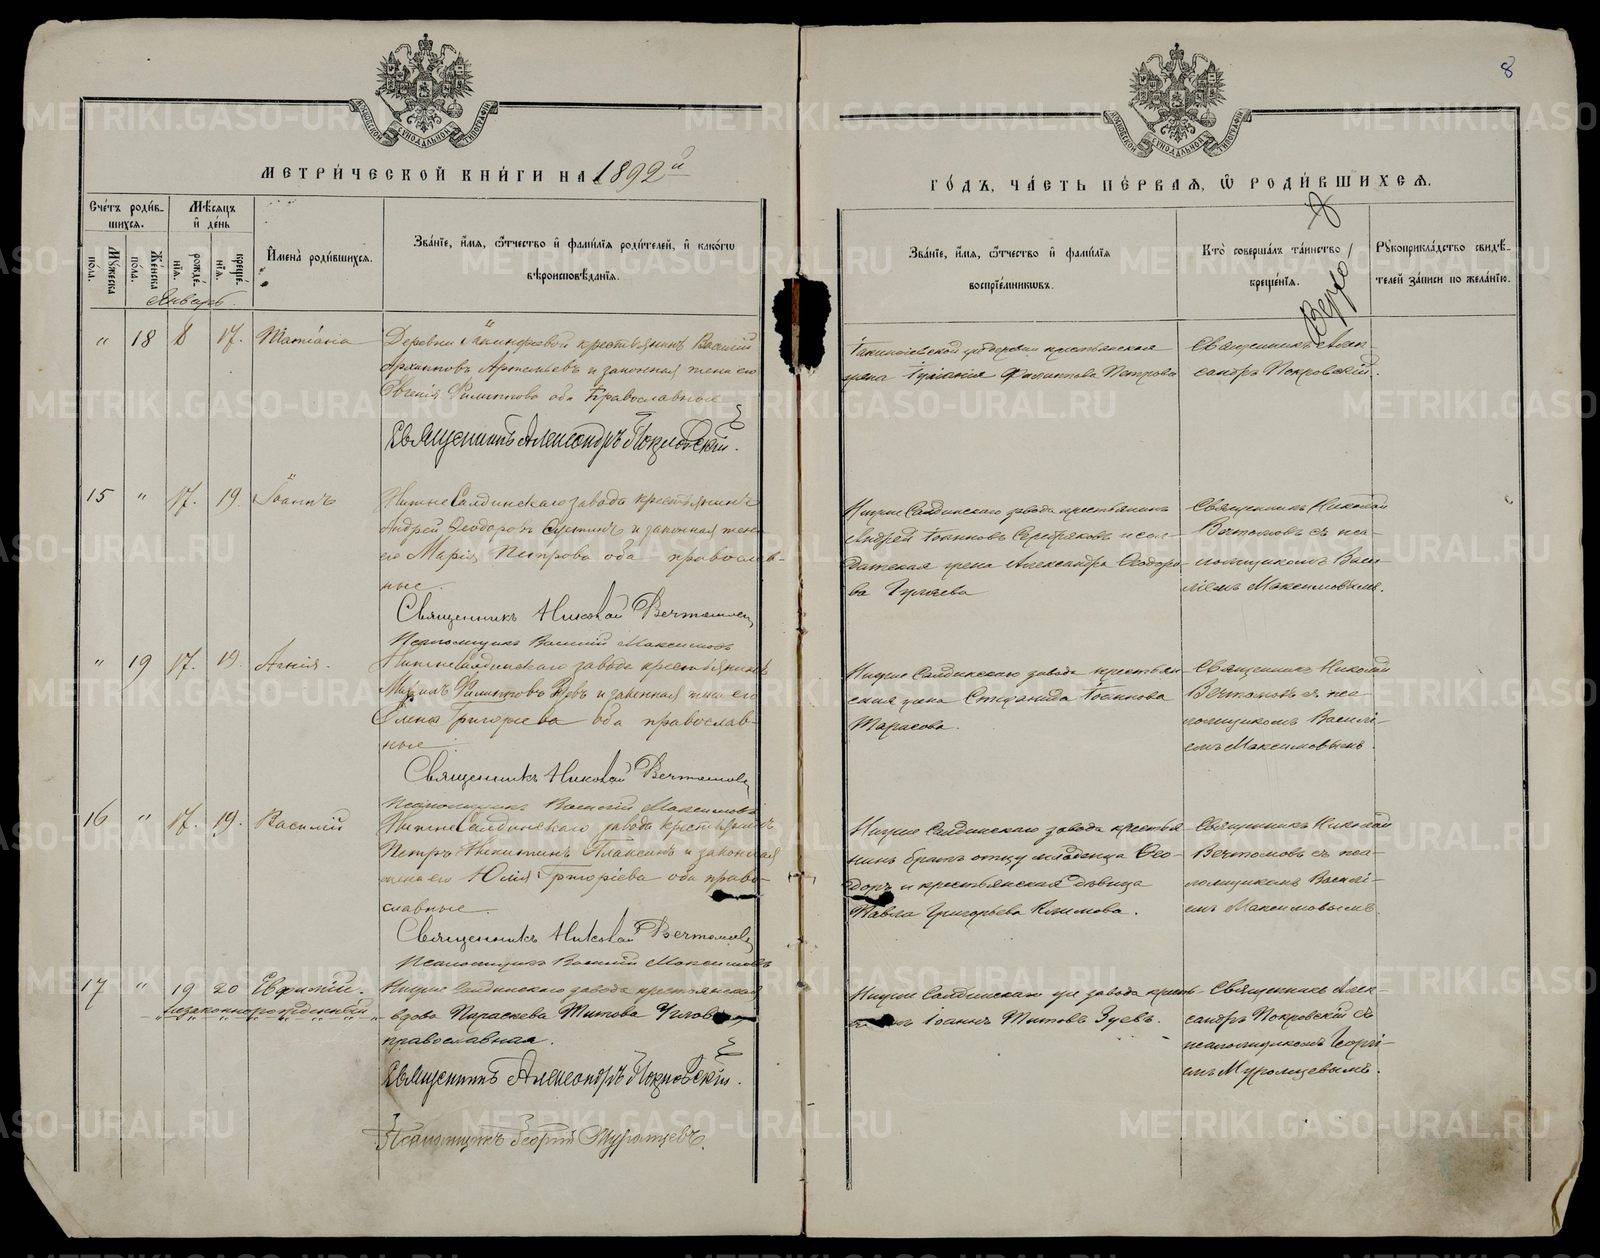 8
МЕТРИ́ЧЕСКОЙ КНИ́ГИ НА 1892й
ГО́ДЪ, ЧА́СТЬ ПЕ́РВАЯ, Ѽ РОДИ́ВШИХСѦ.
Счётъ роди́вшихсѧ.
Мꙋ́жеска по́ла.
Же́нска по́ла.
Мѣ́сѧцъ и҆ де́нь
рожде́нїѧ.
креще́нїѧ.
И҆мена̀ роди́вшихсѧ.
Зва́нїе, и҆́мѧ, ѻ҆́тчество и҆ фами́лїѧ роди́телей, и҆ како́гѡ вѣроисповѣ́данїѧ.
Зва́нїе, и҆́мѧ, ѻ҆́тчество и҆ фами́лїѧ воспрїе́мниковъ.
Кто̀ соверша́лъ та́инство креще́нїѧ.
Рꙋкоприкла́дство свидѣ́телей за́писи по жела́нїю.
Январь.
" 18 8 17. Татіана
Деревни крестьянинъ Василій
Архиповъ Артемьевъ и законная жена его
Евгенія Филиппова оба Православные
Священникъ Александръ Покровскій.
крестьянская
жена Филиппова Петрова
Священникъ Алек-
сандръ Покровскій.
15 " 17. 19. Іоаннъ
Нижне Салдинскаго завода крестьянинъ
Андрей Ѳеодоровъ и законная жена
его Марія Петрова оба православ-
ные
Священникъ Николай Вечтомовъ
Псаломщикъ Василій Максимовъ
Нижне Салдинскаго завода крестьянинъ
Андрей Іоанновъ Серебряковъ и сол-
датская жена Александра Ѳеодоро-
ва Гуляева
Священникъ Николай
Вечтомовъ съ пса-
ломщикомъ Васи-
ліемъ Максимовымъ.
" 19 17. 19. Агнія.
Нижне Салдинскаго завода крестьянинъ
Михаилъ Филипповъ Зуевъ и законная жена его
Елена Григоріева оба православ-
ные
Священникъ Николай Вечтомовъ
Псаломщикъ Василій Максимовъ
Нижне Салдинскаго завода крестьян-
ская жена Стефанида Іоаннова
Тарасова.
Священникъ Николай
Вечтомовъ съ пса-
ломщикомъ Василі-
емъ Максимовымъ.
16 " 17. 19. Василій
Нижне Салдинскаго завода крестьянинъ
Петръ Никитинъ Плаксинъ и законная
жена его Юлія Григоріева оба право-
славные.
Священникъ Николай Вечтомовъ
Псаломщикъ Василій Максимовъ
Нижне Салдинскаго завода крестья-
нинъ братъ отцу младенца Ѳео-
доръ и крестьянская дѣвица
Павла Григорьева Климова.
Священникъ Николай
Вечтомовъ съ пса-
ломщикомъ Василі-
емъ Максимовымъ.
17 " 19 20 Евфимій.
незаконнорожденный
Нижне Салдинскаго завода крестьянская
вдова Параскева Титова
православная.
Священникъ Александръ Покровскій.
Псаломщикъ Георгій Муромцевъ.
Іоаннъ Титовъ Зуевъ.
Священникъ Алек-
сандръ Покровскій съ
псаломщикомъ Георгі-
емъ Муромцевымъ.
METRIKI.GASO-URAL.RU